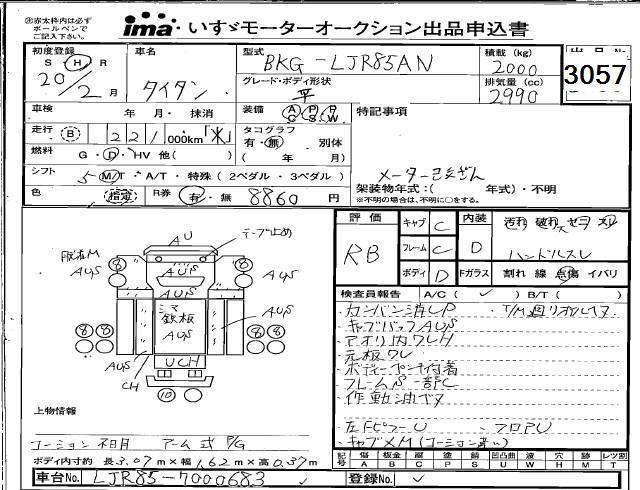 ※赤太枠内は必ず
ボールペンで
ご記入下さい。
ima いすゞモーターオークション出品申込書
初度登録 S H R 20/2月
車名 タイタン
型式 BKG-LJR85AN
積載(kg) 2000
3057
グレード・ボディ形状 平
排気量(cc) 2990
車検 年・月・抹消
装備 A/C P/S P/W
特記事項
走行 B 221,000km「米」
タコグラフ 有・無 別体
( 年 月)
燃料 G・D・HV 他( )
メーター改ざん
シフト 5 M/T・A/T・特殊(2ペダル・3ペダル)
架装物年式:( 年式)・不明
※不明の場合は、不明に○をする。
色 指定
R券 有・無 8860円
評価 RB
キャブ C
内装 D 汚れ 破れ
フレーム C
ハンドルスレ
ボディ D
Fガラス 割れ 線 点傷 イバリ
検査員報告 A/C(✓) B/T( )
カンバン消しP
キャブバックAUS
アオリ内ワレH
元板ワレ
ボディーペンキ付着
フレームS一部C
作動油モレ
左FピラーU フロアU
キャブメM
テープ止め
AU
8 8
AUS AUS
AUS
シマ鉄板
AUS
AUS
88 88
AUS
UCH
CH
10
上物情報
コーション不明 アーム式P/G
ボディ内寸 約 長3.07m×幅1.62m×高0.37m
記号 傷A 板金B 腐食C 塗装P 錆S 凹凸曲U 波W 穴H 跡M レツ割T
車台No. LJR85-7000683
登録No.